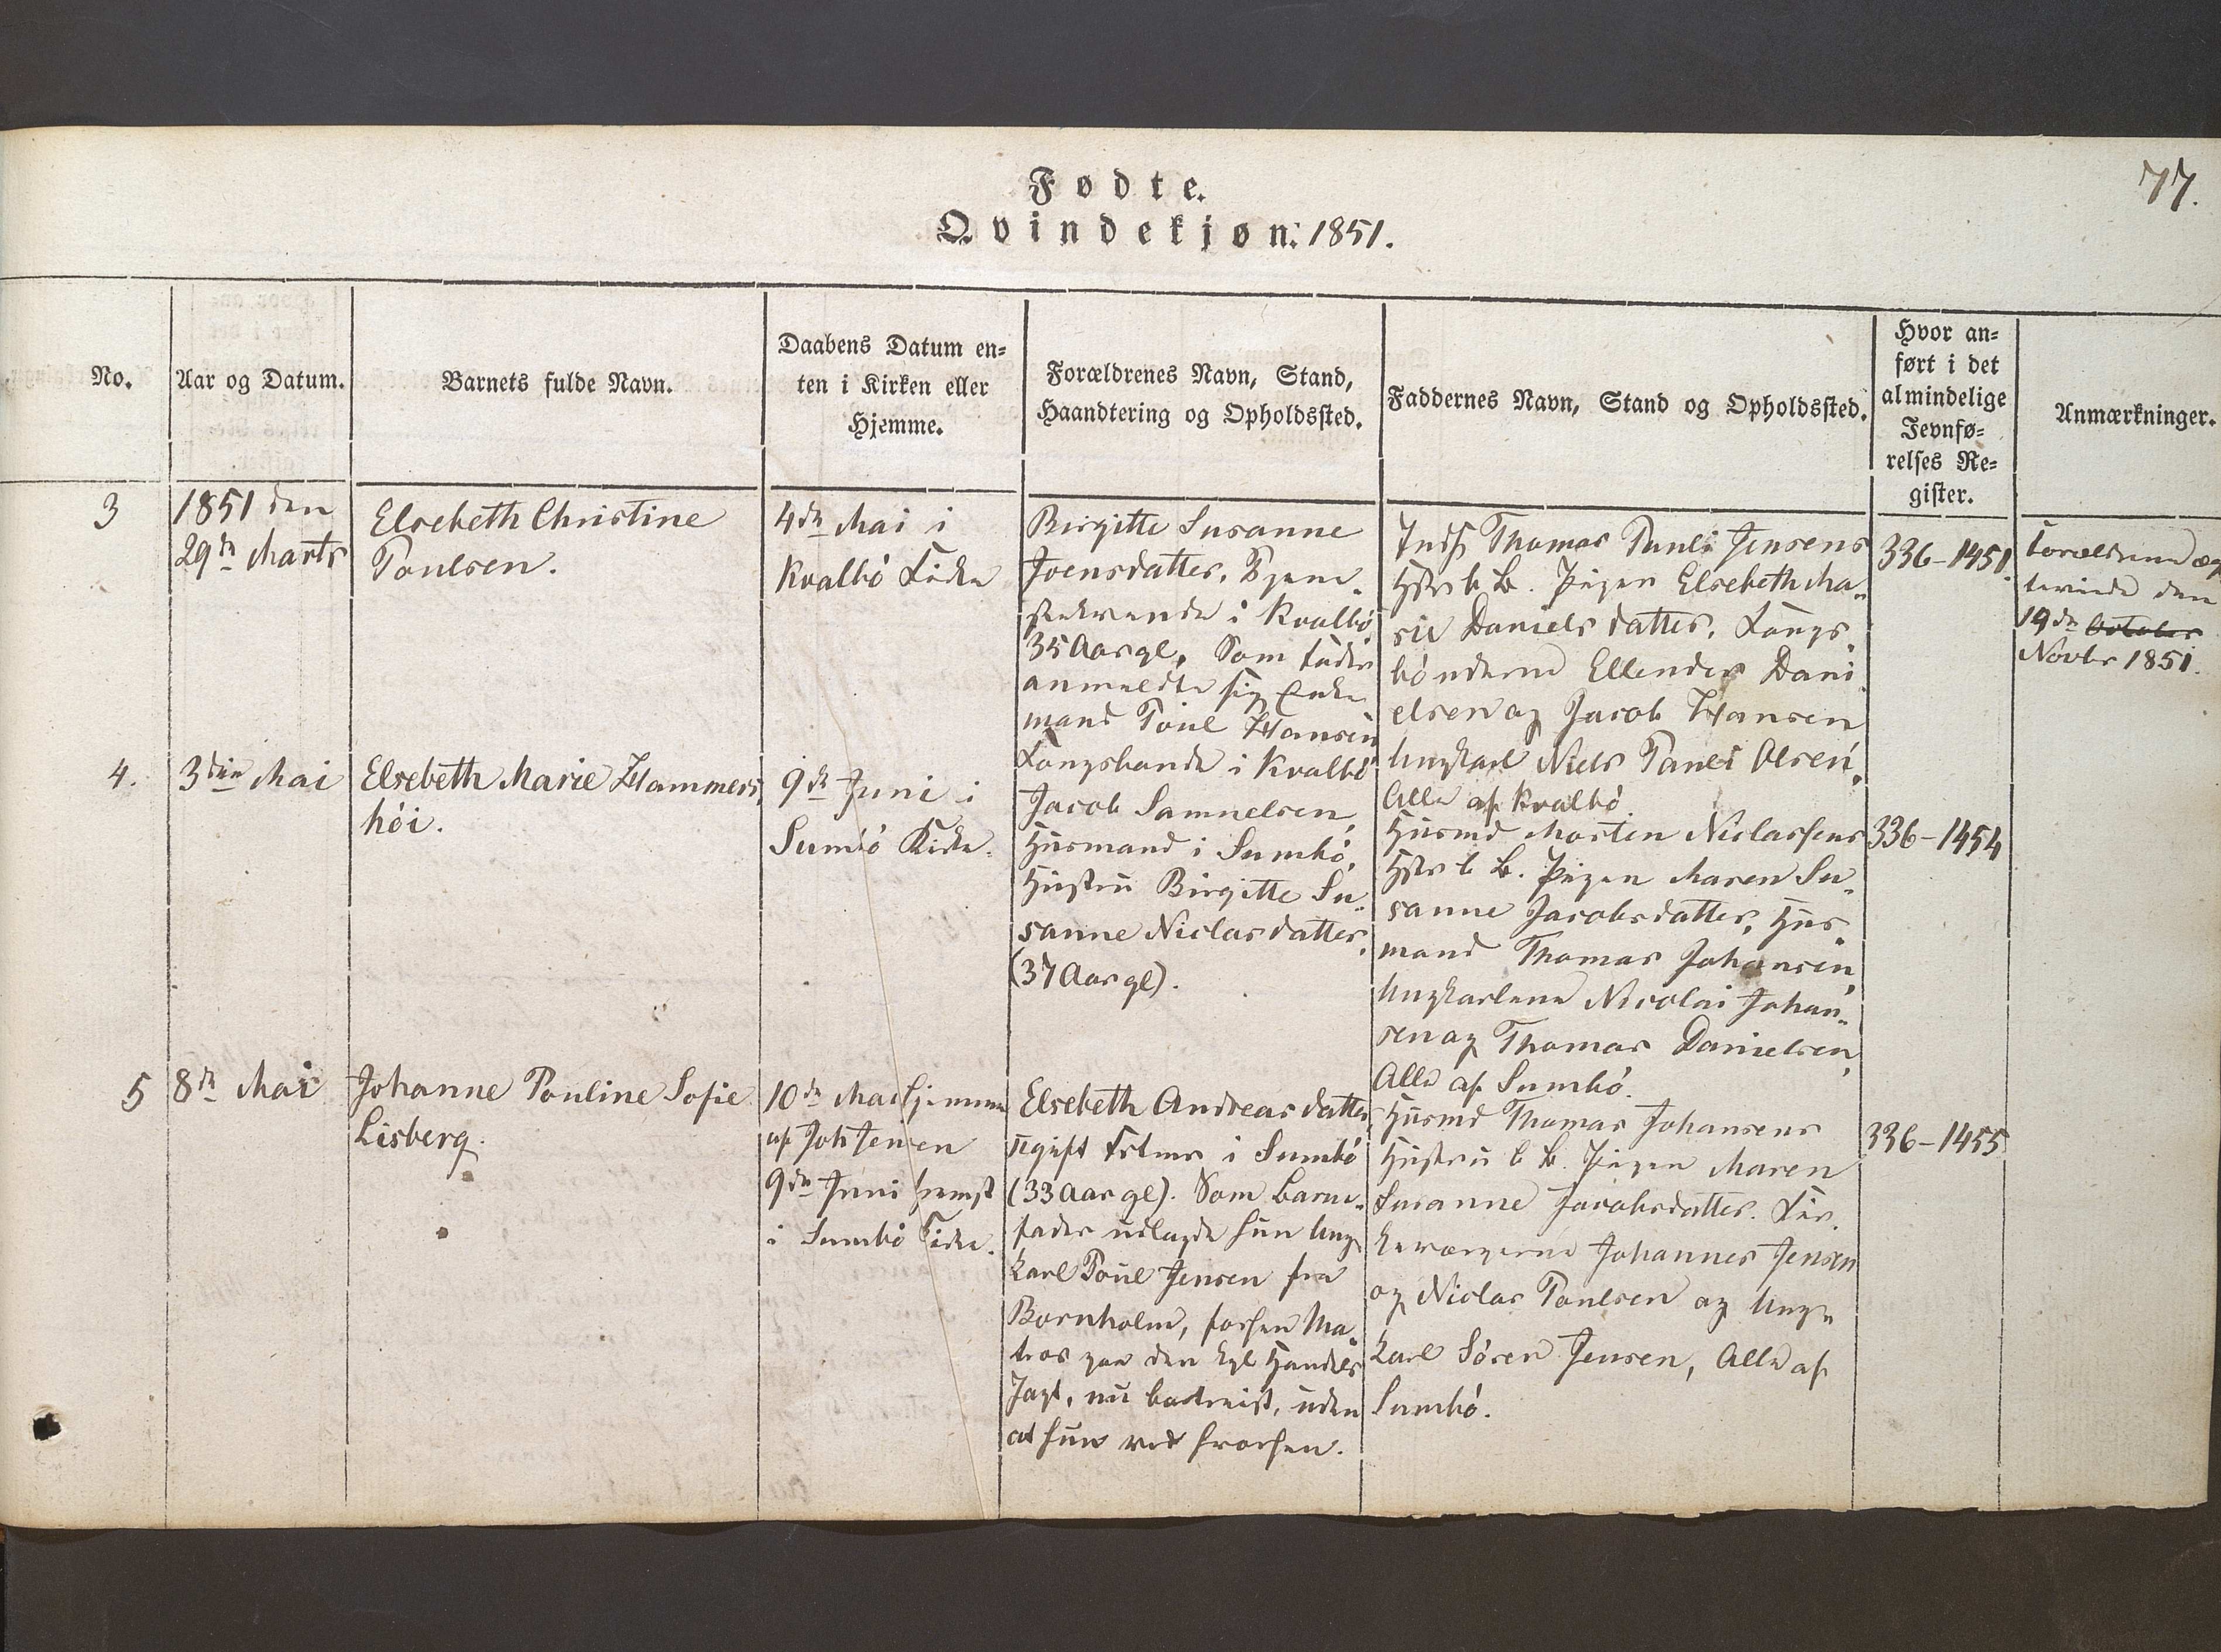 77.
Fødte.
Qvindekjøn: 1851.
No.
Aar og Datum.
Barnets fulde Navn.
Daabens Datum en-
ten i Kirken eller
Hjemme.
Forældrenes Navn, Stand,
Haandtering og Opholdssted.
Faddernes Navn, Stand og Opholdssted.
Hvor an-
ført i det
almindelige
Jevnfø-
relses Re-
gister.
Anmærkninger.
3
1851 den
29de Marts
Elsebeth Christine
Poulsen.
4de Mai i
Kvalbö Kirke
Birgitte Susanne
Joensdatter, Tjene-
i Kvalbö
35 Aar gl. Som Fader
anmeldte sig Enke-
mand Poul Hansen
Kongsbonde i Kvalbö
Thomas Pauli Jensens
b. B. Pigen Elsebeth Ma-
rie Danielsdatter, Kongs-
bönderne Ellendes Dani-
elsen og Jacob Hansen
Ungkarl Niels Pauli Olsen.
Alle af Kvalbö.
336-1451.
Forældrene æg-
teviede den
19de October
Novbr 1851.
4.
3die Mai
Elsebeth Marie Hammers-
höi.
9de Juni i
Sumbö Kirke.
Jacob Samuelsen,
Husmand i Sumbö,
Hustru Birgitte Su-
sanne Niclasdatter.
(37 Aar gl).
Husmd Morten Niclassens
Hstr b. B. Pigen Maren Su-
sanne Jacobsdatter, Hus-
mand Thomas Johansen,
Ungkarlene Nicolai Johan-
sen og Thomas Danielsen,
Alle af Sumbö.
336-1454
5
8de Mai
Johanne Pouline Sofie
Lisberg.
10de Mai hjemme
af Joh Jensen
9de Juni fremst
i Sumbö Kirke.
Elsebeth Andreasdatter
ugift i Sumbö
(33 Aar gl). Som Barne-
fader udlagde hun Ung-
karl Poul Jensen fra
Bornholm, forhen Ma-
tros paa den kgl Handels
Jagt, nu bortreist, uden
at hun ved hvorhen.
Husmd Thomas Johansens
Hustru b. B. Pigen Maren
Susanne Jacobsdatter. Kir-
keværgerne Johannes Jensen
og Niclas Poulsen og Ung-
karl Sören Jensen, Alle af
Sumbö.
336-1455